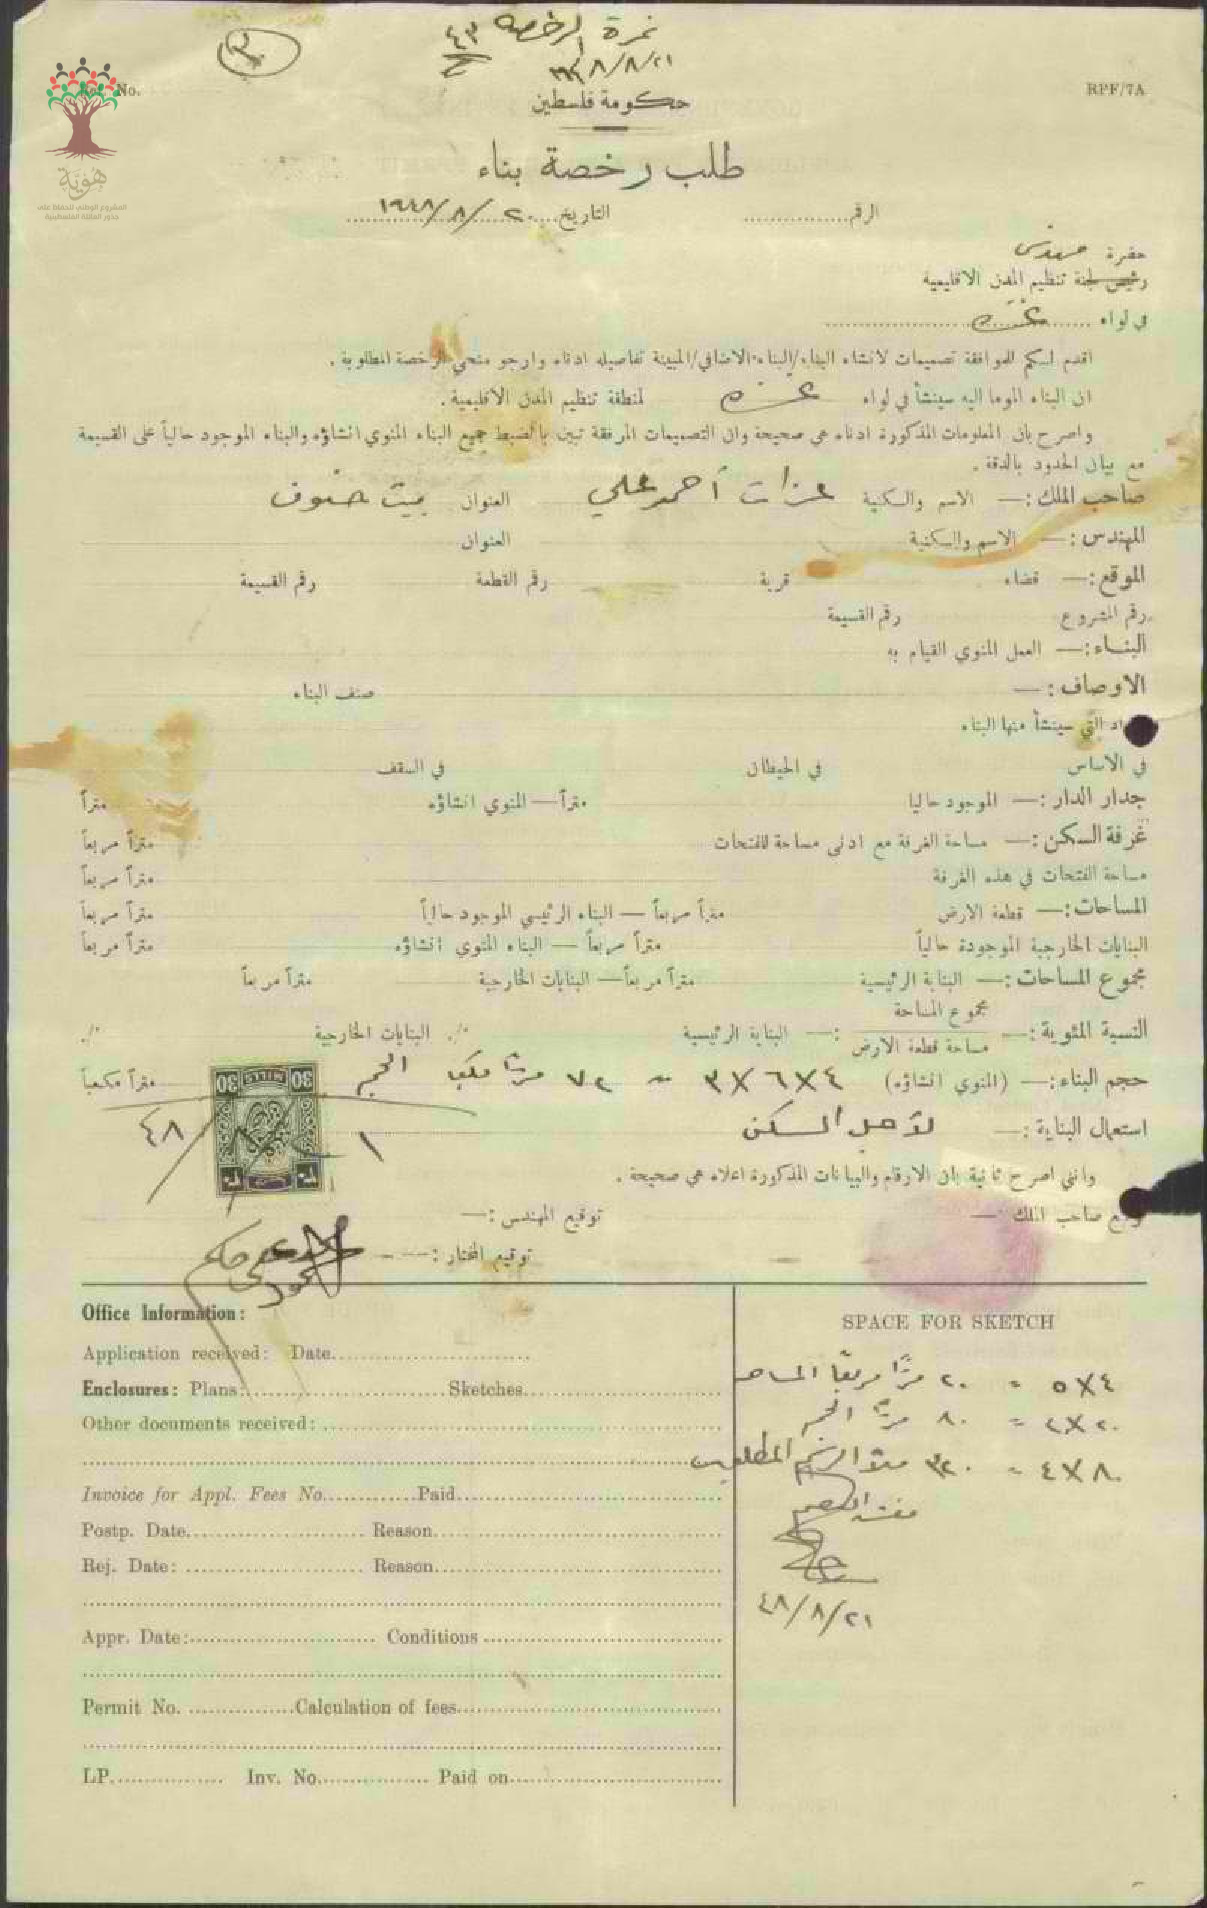 نمرة الرخصة ٤٣
٢١/٨/٩٤٨
Ref. No.
RPF/7A
هوية
المشروع الوطني للحفاظ على
جذور العائلة الفلسطينية
حكومة فلسطين
طلب رخصة بناء
الرقم................ التاريخ ٢٠/٨/١٩٤٨
حضرة مهندس
رئيس لجنة تنظيم المدن الاقليمية
في لواء غزه
اقدم لكم للموافقة تصميمات لانشاء البناء/البناء الاضافي/المبينة تفاصيله ادناه وارجو منحي الرخصة المطلوبة.
ان البناء الموما اليه سينشأ في لواء غزه لمنطقة تنظيم المدن الاقليمية.
واصرح بان المعلومات المذكورة ادناه هي صحيحة وان التصميمات المرفقة تبين بالضبط جميع البناء المنوي انشاؤه والبناء الموجود حالياً على القسيمة
مع بيان الحدود بالدقة.
صاحب الملك:— الاسم والكنية عزات أحمد علي العنوان بيت حنون
المهندس:— الاسم والكنية العنوان
الموقع:— قضاء قرية رقم القطعة رقم القسيمة
رقم المشروع رقم القسيمة
البناء:— العمل المنوي القيام به
الاوصاف:— صنف البناء
اد التي سينشأ منها البناء
في الاساس في الحيطان في السقف
جدار الدار:— الموجود حاليا متراً— المنوي انشاؤه متراً
غرفة السكن:— مساحة الغرفة مع ادنى مساحة للفتحات متراً مربعاً
مساحة الفتحات في هذه الغرفة متراً مربعاً
المساحات:— قطعة الارض متراً مربعاً — البناء الرئيسي الموجود حالياً متراً مربعاً
البنايات الخارجية الموجودة حالياً متراً مربعاً — البناء المنوي انشاؤه متراً مربعاً
مجموع المساحات:— البناية الرئيسية متراً مربعاً— البنايات الخارجية متراً مربعاً
النسبة المئوية:— مجموع المساحة / مساحة قطعة الارض :— البناية الرئيسية ./' البنايات الخارجية ./'
حجم البناء:— (المنوي انشاؤه) ٤×٦×٣ = ٧٢ مترًا مكعبا الحجم متراً مكعباً
استعمال البناية:— لأجل السكن
٣٠ MILLS ٣٠
١/٨/٤٨
وانني اصرح ثانية بان الارقام والبيانات المذكورة اعلاه هي صحيحة.
توقيع صاحب الملك — توقيع المهندس:—
توقيع المختار:—
Office Information:
Application received: Date
Enclosures: Plans: Sketches
Other documents received:
Invoice for Appl. Fees No. Paid
Postp. Date Reason
Rej. Date: Reason
Appr. Date: Conditions
Permit No. Calculation of fees
LP. Inv. No. Paid on
SPACE FOR SKETCH
٤×٥ = ٢٠ مترًا مربعًا المساحة
٢٠×٤ = ٨٠ مترًا الحجم
٨٠×٤ = ٣٢٠
٢١/٨/٤٨